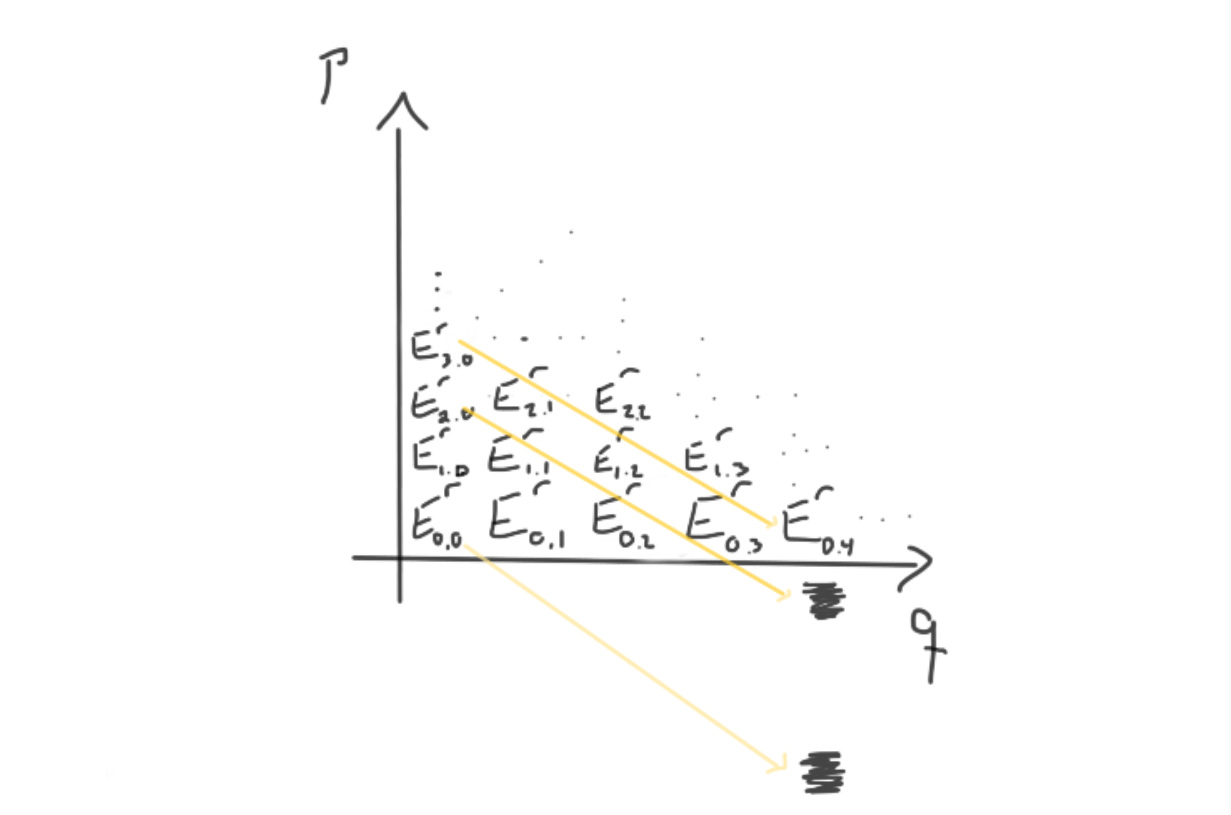 P
E^r_{3.0}
E^r_{2.0} E^r_{2.1} E^r_{2.2}
E^r_{1.0} E^r_{1.1} E^r_{1.2} E^r_{1.3}
E^r_{0,0} E^r_{0,1} E^r_{0.2} E^r_{0.3} E^r_{0.4}
q